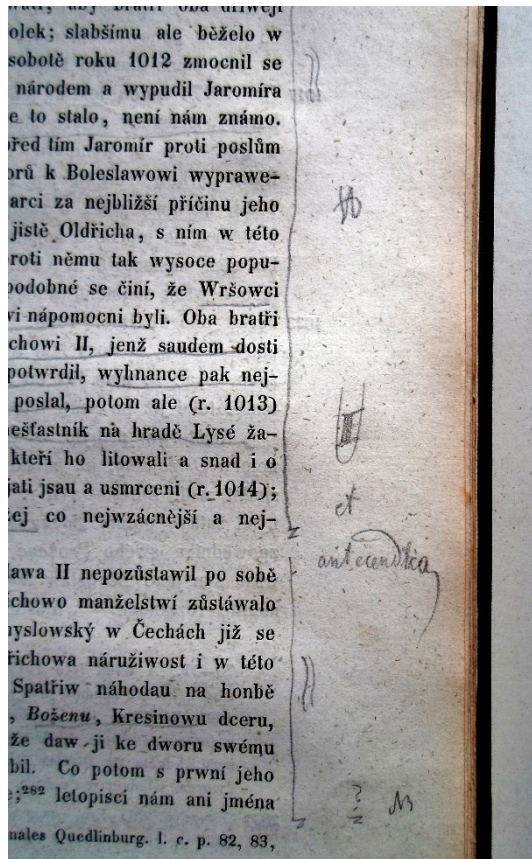 olek; slabšímu ale běželo w
sobotě roku 1012 zmocnil se
národem a wypudil Jaromíra
e to stalo, není nám známo.
řed tím Jaromír proti poslům
orů k Boleslawowi wyprawe-
arci za nejbližší příčinu jeho
jistě Oldřicha, s ním w této
roti němu tak wysoce popu-
podobné se činí, že Wršowci
wi nápomocni byli. Oba bratři
chowi II, jenž saudem dosti
potwrdil, wyhnance pak nej-
poslal, potom ale (r. 1013)
nešťastník na hradě Lysé ža-
kteří ho litowali a snad i o
jati jsau a usmrceni (r. 1014);
žej co nejwzácnější a nej-
et
antecendtia
lawa II nepozůstawil po sobě
chowo manželstwí zůstáwalo
myslowský w Čechách již se
řichowa náružiwost i w této
Spatřiw náhodau na honbě
, Boženu, Kresinowu dceru,
že daw ji ke dworu swému
bil. Co potom s prwní jeho
e;282 letopisci nám ani jména
? N
nales Quedlinburg. l. c. p. 82, 83,